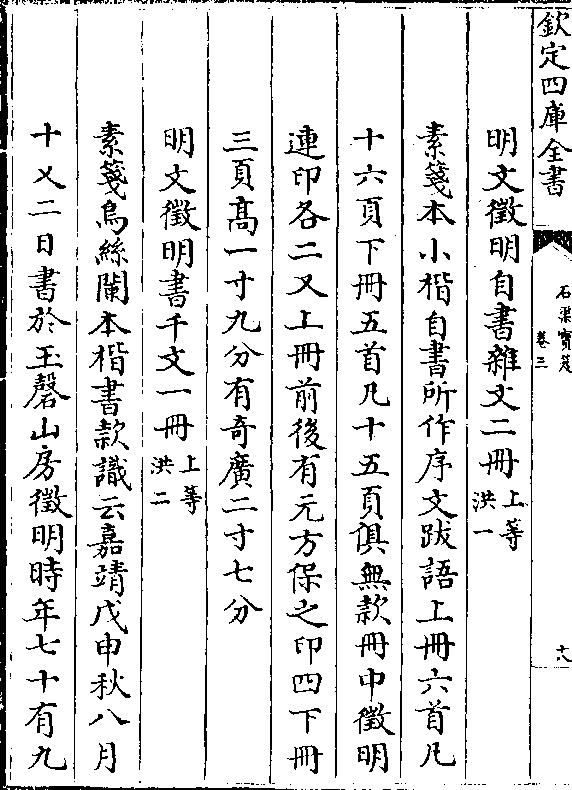 欽定四庫全書
石渠寶笈
卷三
十八
明文徵明自書雜文二冊上等洪一
素箋本小楷自書所作序文跋語上冊六首凡
十六頁下冊五首凡十五頁俱無款冊中徵明
連印各二又上冊前後有元方保之印四下冊
三頁髙一寸九分有奇廣二寸七分
明文徵明書千文一冊上等洪二
素箋烏絲闌本楷書款識云嘉靖戊申秋八月
十又二日書於玉磬山房徵明時年七十有九